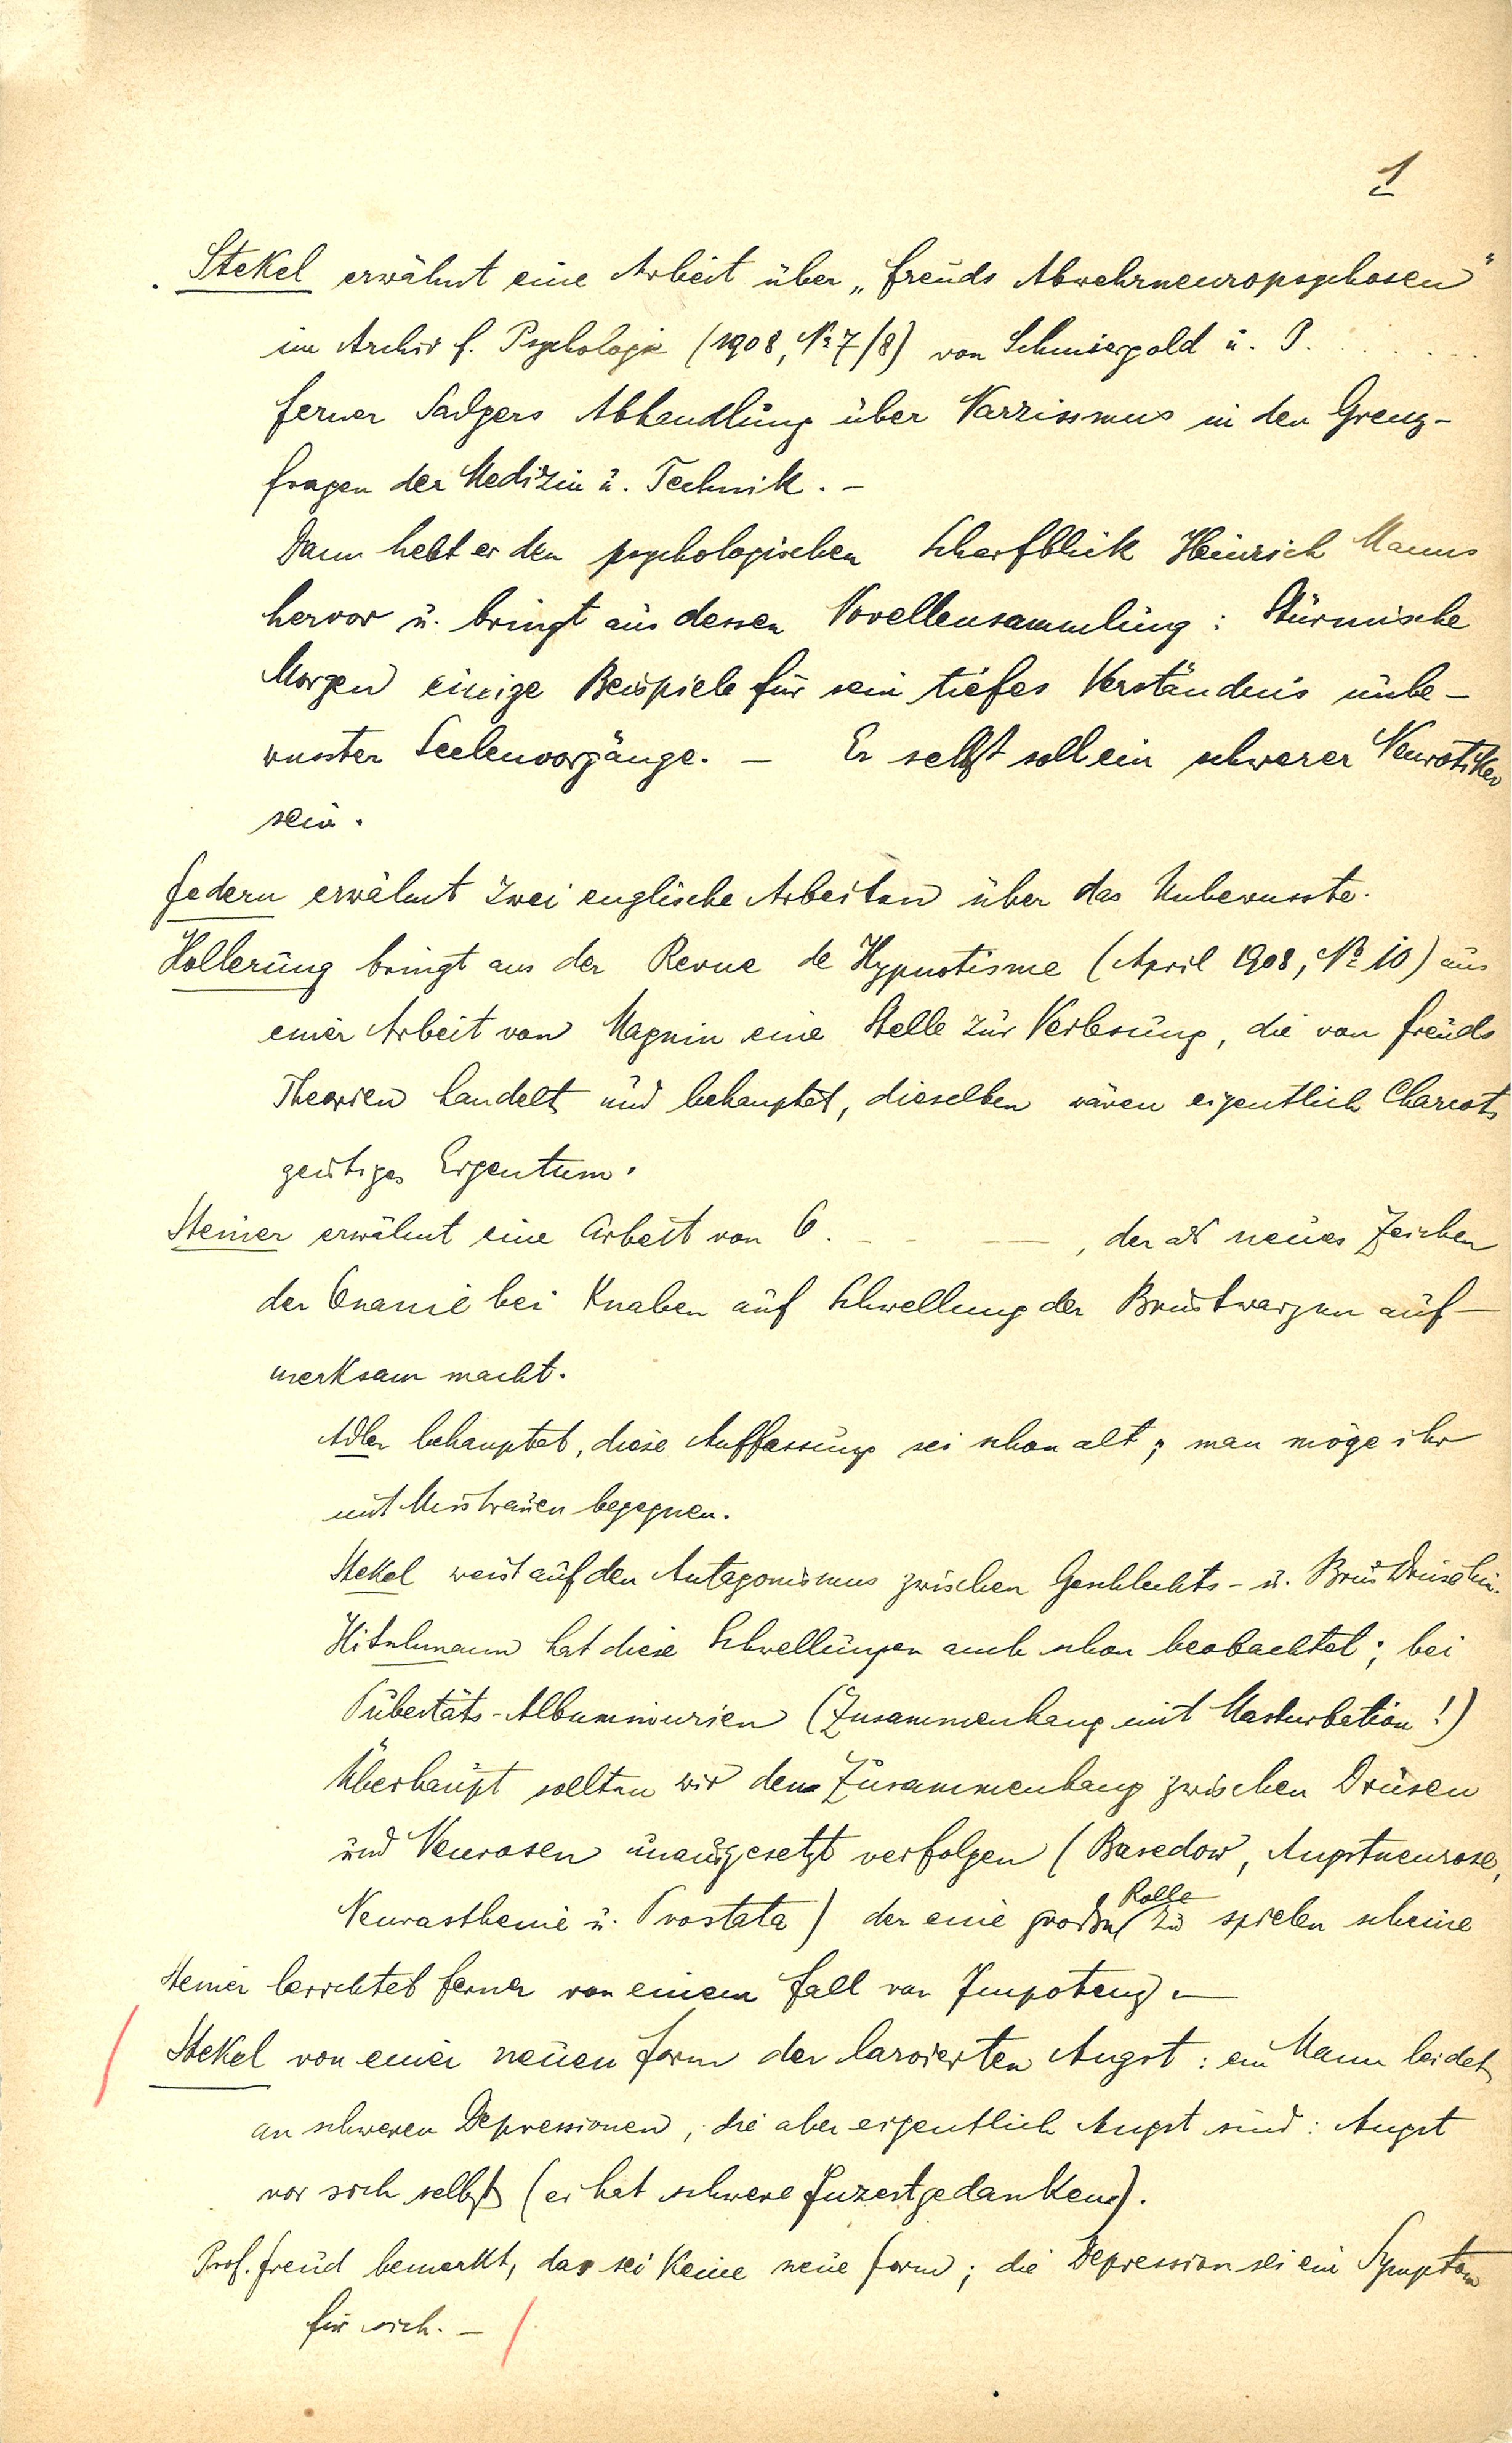 1
Stekel erwähnt eine Arbeit über „Freuds Abwehrneuropsychosen"
im Archiv f. Psychologie (1908, № 7/8) von Schmiergold u. P. . . . . . .
ferner Sadgers Abhandlung über Narzissmus in den Grenz-
fragen der Medizin u. Technik. –
Dann hebt er den psychologischen Scharfblick Heinrich Manns
hervor u. bringt aus dessen Novellensammlung: Stürmische
Morgen einige Beispiele für sein tiefes Verständnis unbe-
wusster Seelenvorgänge. – Er selbst soll ein schwerer Neurotiker
sein.
Federn erwähnt zwei englische Arbeiten über das Unbewusste.
Hollerung bringt aus der Revue de Hypnotisme (April 1908, № 10) aus
einer Arbeit von Magnin eine Stelle zur Verlesung, die von Freuds
Theorien handelt und behauptet, dieselben wären eigentlich Charcots
geistiges Eigentum.
Steiner erwähnt eine Arbeit von O. – – –, der als neues Zeichen
der Onanie bei Knaben auf Schwellung der Brustwarzen auf-
merksam macht.
Adler behauptet, diese Auffassung sei schon alt; man möge ihr
mit Misstrauen begegnen.
Stekel weist auf den Antagonismus zwischen Geschlechts- u. Brustdrüse hin.
Hitschmann hat diese Schwellungen auch schon beobachtet; bei
Pubertäts-Albuminurien (Zusammenhang mit Masturbation!)
Überhaupt sollten wir den Zusammenhang zwischen Drüsen
und Neurosen unausgesetzt verfolgen (Basedow, Angstneurose,
Neurasthenie u. Prostata) der eine große Rolle zu spielen scheine
Steiner berichtet ferner von einem Fall von Impotenz. –
Stekel von einer neuen Form der larvierten Angst: ein Mann leidet
an schweren Depressionen, die aber eigentlich Angst sind: Angst
vor sich selbst (er hat schwere Inzestgedanken).
Prof. Freud bemerkt, das sei keine neue Form; die Depression sei ein Symptom
für sich. –